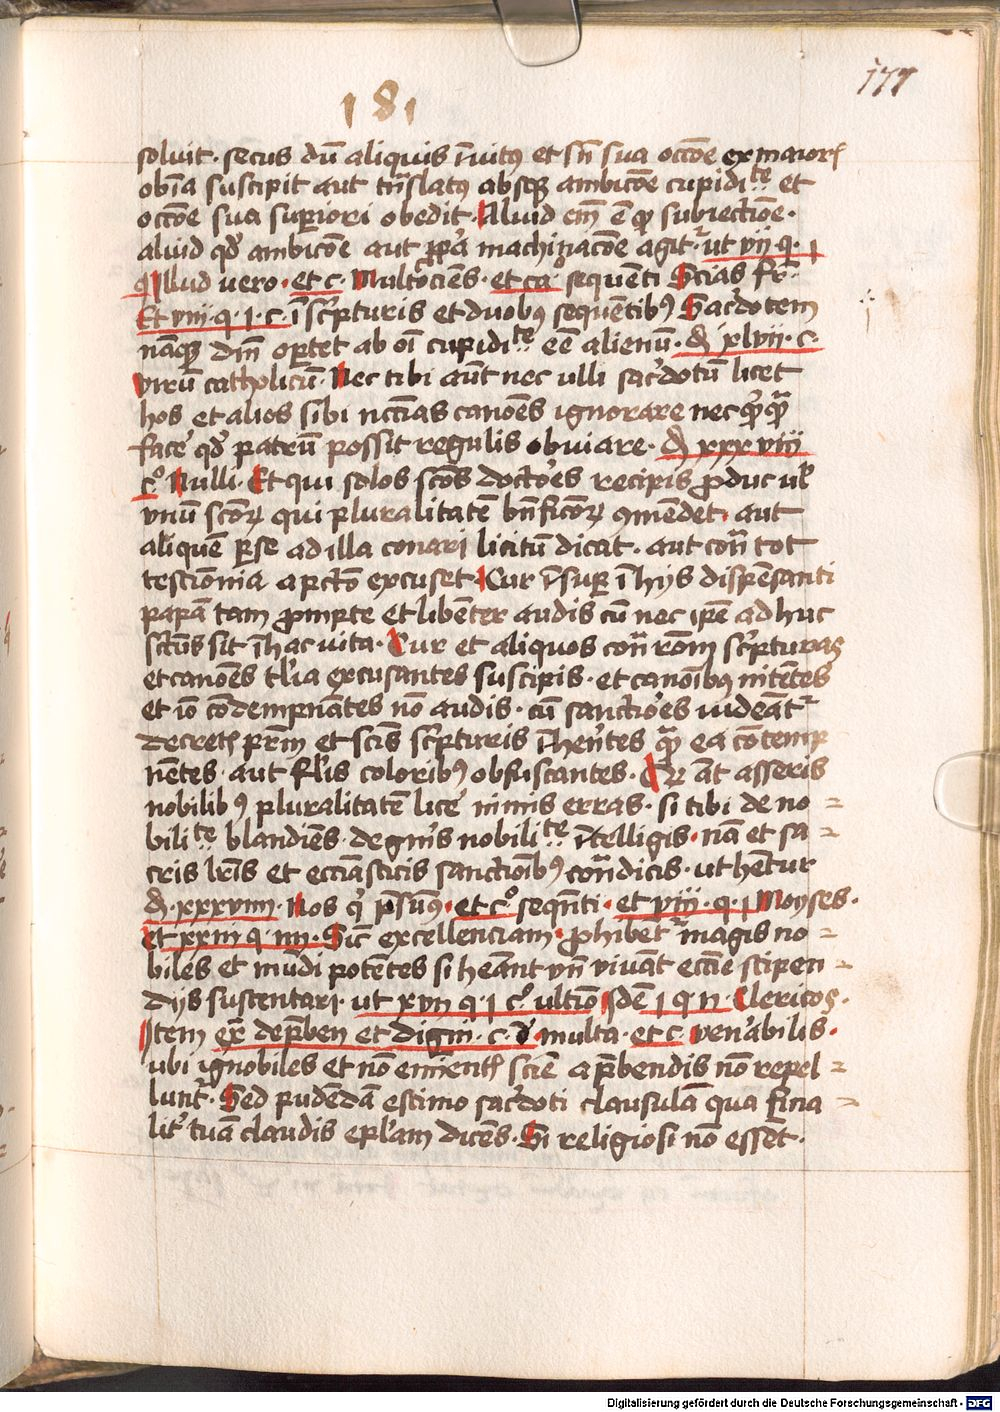 181
177
soluit · secus dū aliquis īuitꝰ et sñ sua occōe ex maioꝝ
obīa suscipit aut trñslatꝰ absqꝫ ambicōe cupidi te et
occōe sua suꝑiori obedit · Aliud em̄ ē qꝫ subiectiōe ·
aliud qđ ambicōe aut machinacōe agit᷑ · ut vij q · j
Illud vero · et c · Multociēs · et ca · sequēti Scias fr̄ ·
Et viij · q · j · c · ī scͥpturis et duobꝰ sequētibꝰ Sac̓dotem
nāqꝫ dn̄i oꝑtet ab oī cupidi te eē alienū · di xlvij · c ·
virū catholicū · Nec tibi aūt nec ulli sac̓dotū licet
hos et alios sibi nccīas canōes ignorare nec qͥqͣ
fac̓e qđ patrū possit regulis obuiare · di xxxviij
cͦ · Nulli · Et qui solos scōs docto̓es recipis ꝓduc ul̓
vnū scōꝝ qui pluralitatē bn̄ficōꝝ ꝯmēdet · aut
aliquē ꝑse ad illa conari licitū dicat · aut con̄ tot
testīonia a pctō excuset · Cur īsuꝑ ī hijs dispēsanti
papā tam ꝓmpte et libēter audis cū nec ip̄e adhuc
sctūs sit ī hac vita · Cur et aliquos con̄ rōm scͥpturas
et canōes tl̓ia excusantes suscipis · et canoībꝰ nitētes
et iō cōdempnātes nō audis · cū sanctio̓es uideāt᷑
decretꝫ pr̄m et scīs scͥpturis īhen̓tes qͣ ea cōtemp
nētes · aut fl̓is coloribꝰ obfuscantes · Qꝛ āt asseris
nobilibꝰ pluralitatē lice̓ nimis erras · si tibi de no =
bili te blandiēs · degn̓is nobili te ītelligis · nā et sa =
cris lr̄is et eccīasticis sanctiōibꝰ con̄dicis · ut hēt᷑ur
di · xxxviiij · Nos qͥ p̄sumꝰ · et cͦ seqn̄ti · et viij · q · j Moyses ·
et xxiij q · iiij · Sic̄ excellenciam · ꝓhibet᷑ magis no =
biles et mūdi potētes si heānt vn̄ vivāt ecc̄ie stipen =
dijs sustentari · ut xvij q · j cͦ · ultīo īdē j q · ij · Clericos ·
Item ex̄ de p̄ben et digni · c · de multa · et c · ven̓abilis ·
ubi ignobiles et nō emīentꝫ sciē a p̄bendis nō repel =
lunt᷑ · Sed pudēdā estimo sac̓doti clausulā qua fina =
lit̓ tuā claudis epl̓am dicēs · Si religiosi nō essēt ·
Digitalisierung gefördert durch die Deutsche Forschungsgemeinschaft - DFG